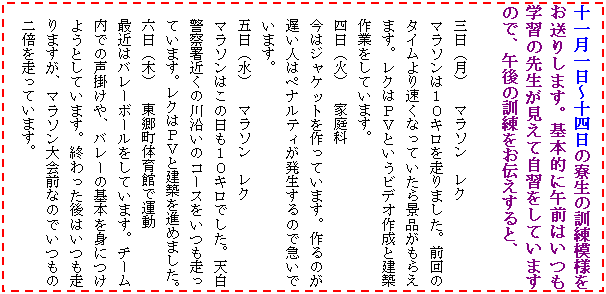 十一月一日～十四日の寮生の訓練模様を
お送りします。基本的に午前はいつも
学習の先生が見えて自習をしています
ので、午後の訓練をお伝えすると、
三日（月）　マラソン　レク
マラソンは１０キロを走りました。前回の
タイムより速くなっていたら景品がもらえ
ます。レクはＰＶというビデオ作成と建築
作業をしています。
四日（火）　家庭科
今はジャケットを作っています。作るのが
遅い人はペナルティが発生するので急いで
います。
五日（水）　マラソン　レク
マラソンはこの日も１０キロでした。天白
警察署近くの川沿いのコースをいつも走っ
ています。レクはＰＶと建築を進めました。
六日（木）　東郷町体育館で運動
最近はバレーボールをしています。チーム
内での声掛けや、バレーの基本を身につけ
ようとしています。終わった後はいつも走
りますが、マラソン大会前なのでいつもの
二倍を走っています。